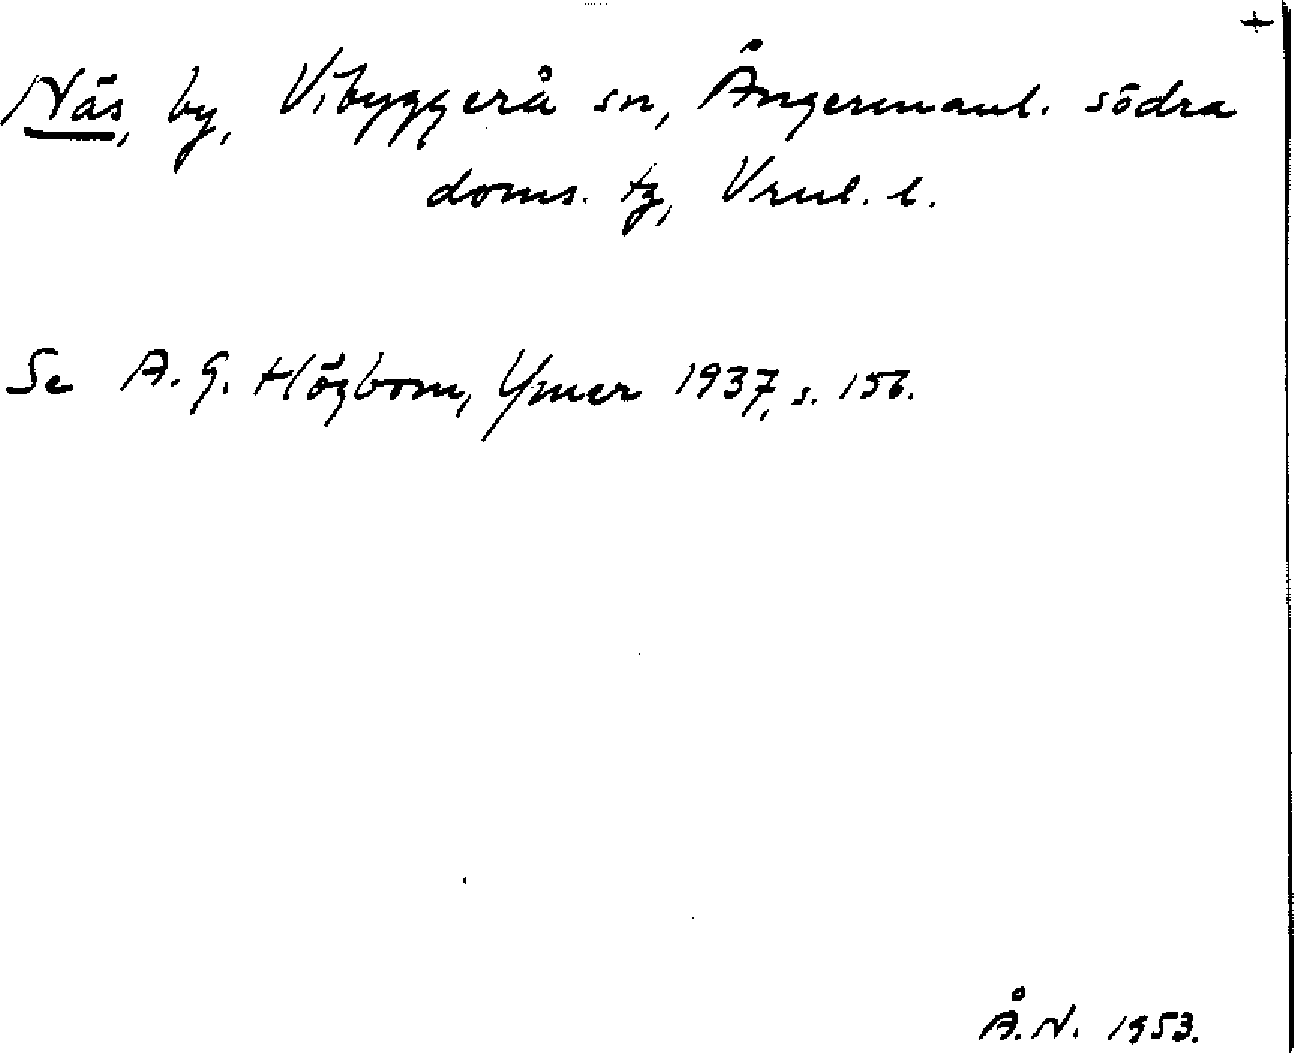 +
Näs, by, Vibyggerå sn, Ångermanl. södra
doms. tg, Vrnl. l.
Se A. G. Högbom, Ymer 1937, s. 156.
Å. N. 1953.